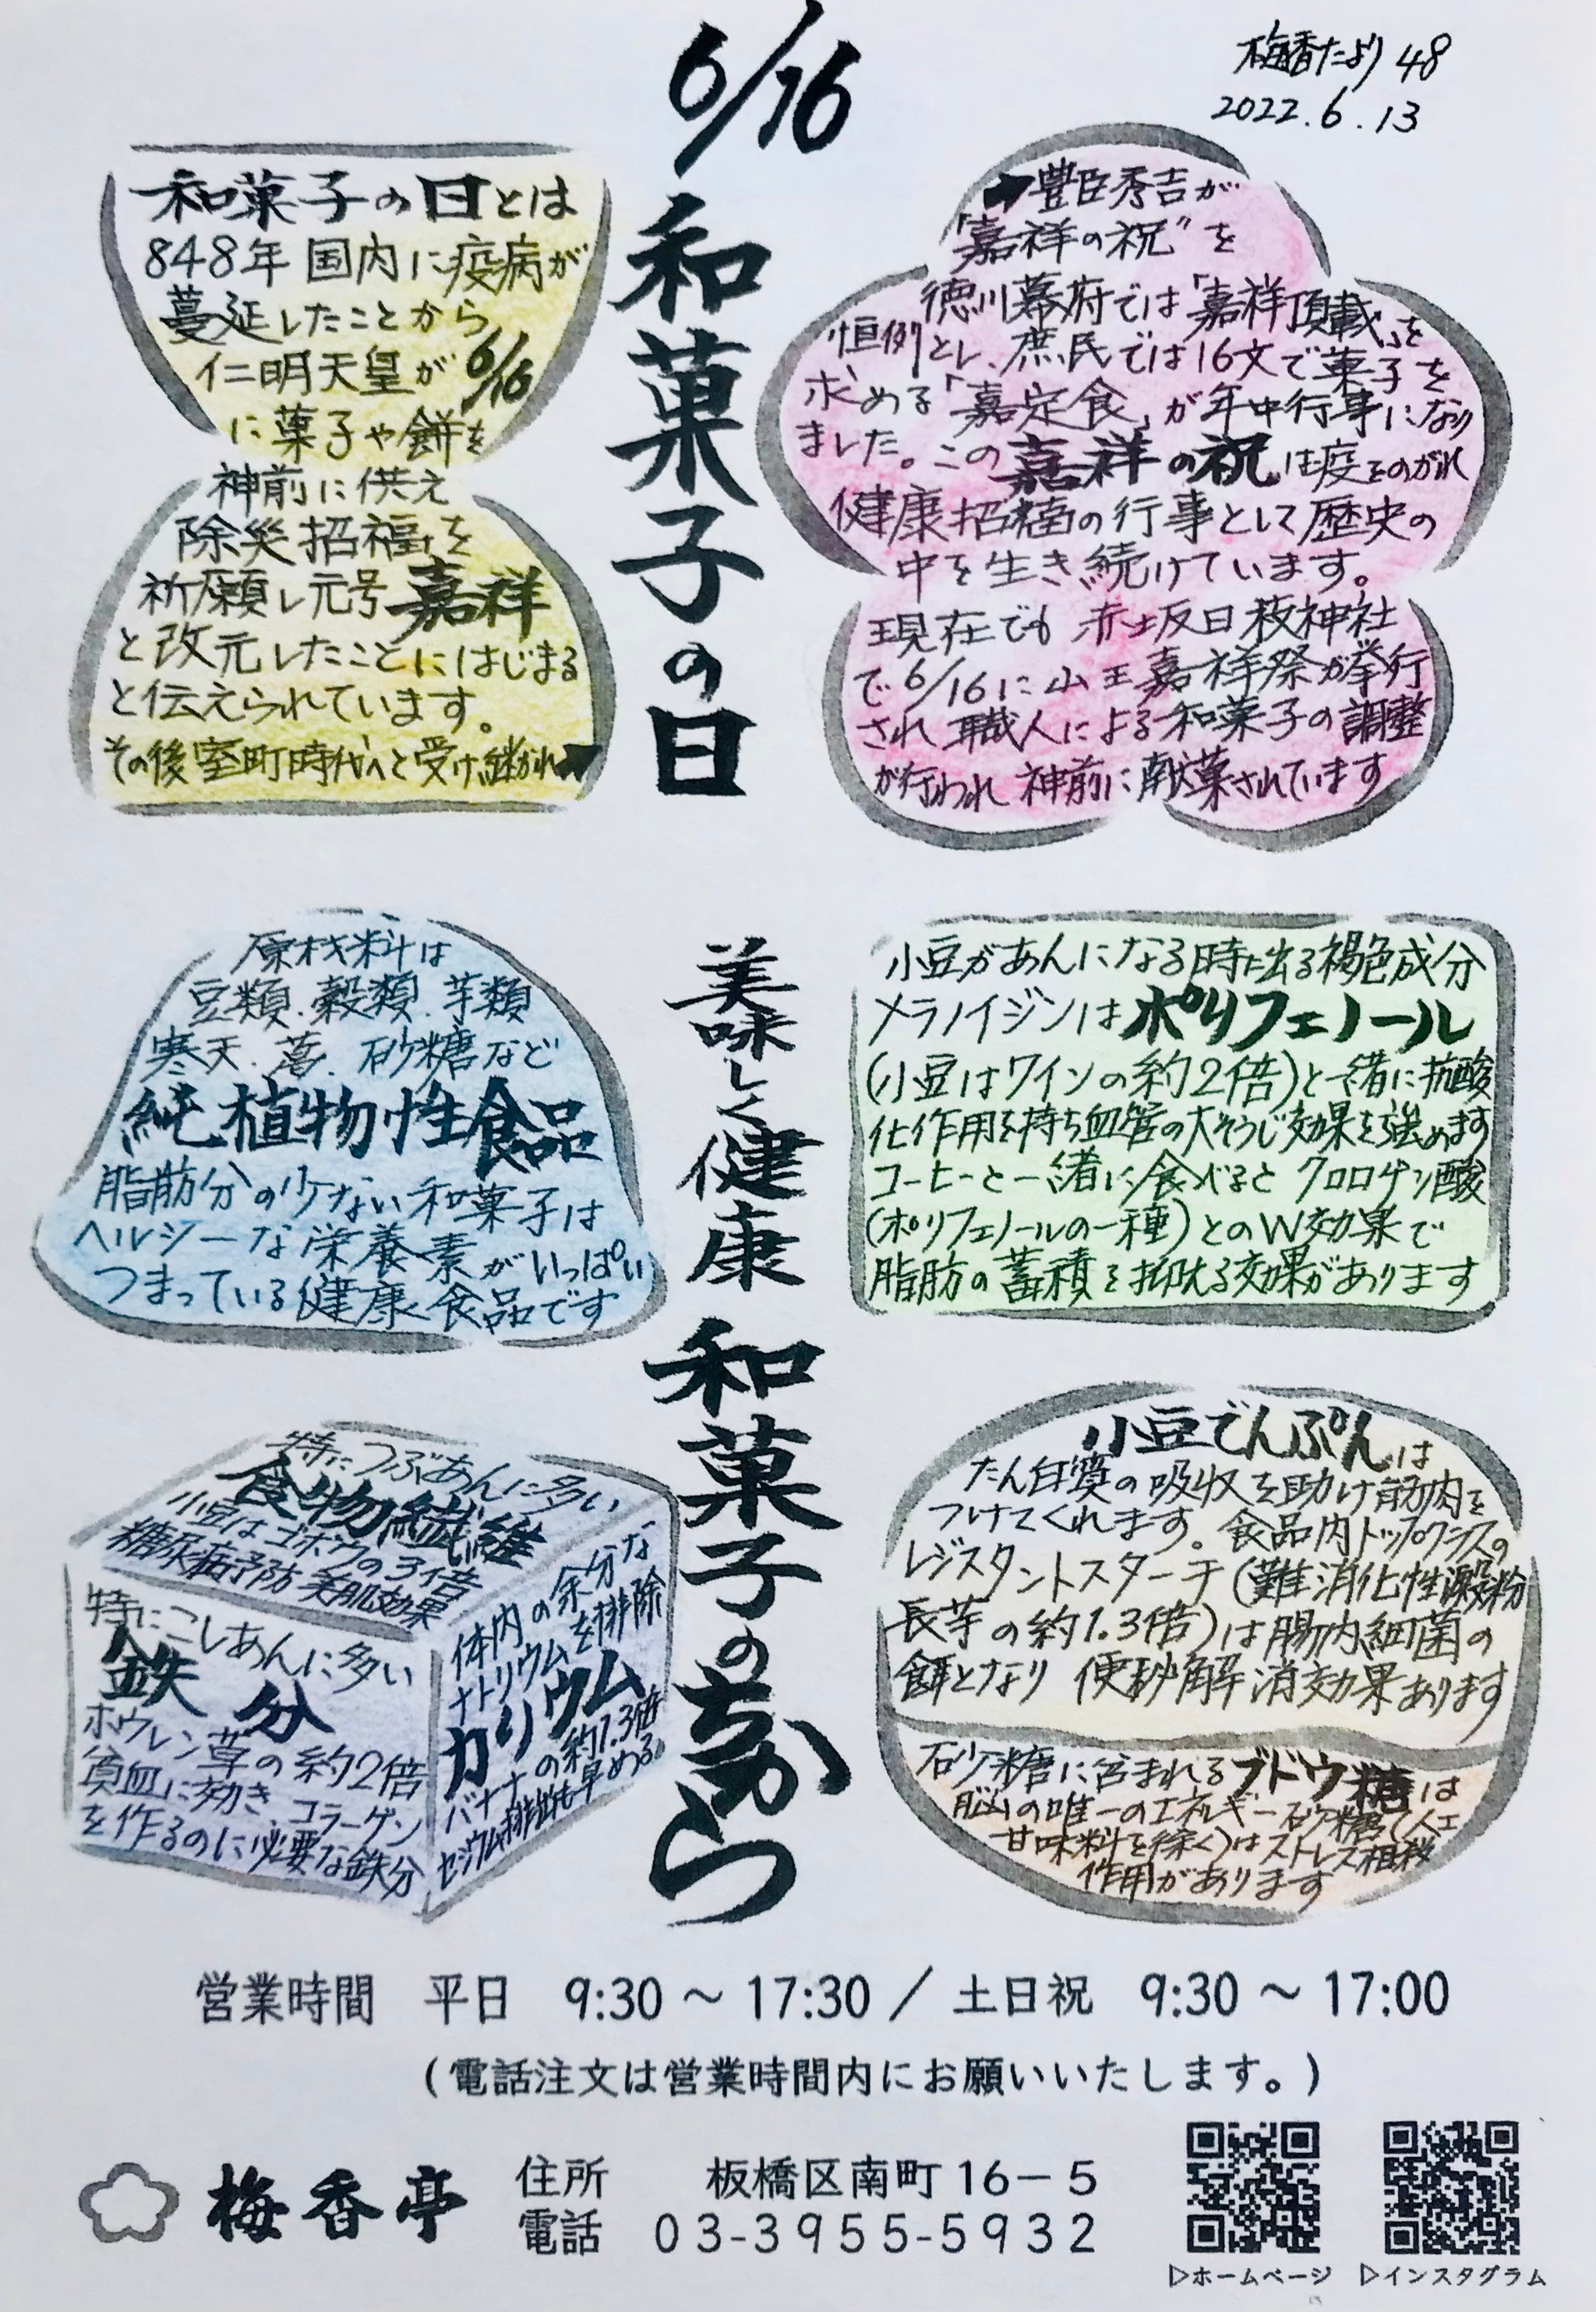 梅香だより 48
2022.6.13
6/16 和菓子の日
和菓子の日とは
848年 国内に疫病が
蔓延したことから
仁明天皇が 6/16
に菓子や餅を
神前に供え
除災招福を
祈願し元号 嘉祥
と改元したことにはじまる
と伝えられています。
その後室町時代へと受け継がれ➡
➡豊臣秀吉が
"嘉祥の祝"を
徳川幕府では「嘉祥頂戴」を
恒例とし、庶民では16文で菓子を
求める「嘉定食」が年中行事になり
ました。この嘉祥の祝は疫をのがれ
健康招福の行事として歴史の
中を生き続けています。
現在でも 赤坂日枝神社
で 6/16に 山王嘉祥祭が挙行
され 職人による和菓子の調整
が行われ 神前に献菓されています
美味しく健康 和菓子のちから
原材料は
豆類.穀類.芋類
寒天.葛.砂糖など
純植物性食品
脂肪分の少ない和菓子は
ヘルシーな栄養素がいっぱい
つまっている健康食品です
小豆があんになる時に出る褐色成分
メラノイジンはポリフェノール
(小豆はワインの約2倍)と一緒に抗酸
化作用を持ち血管の大そうじ効果を強めます
コーヒーと一緒に食べると クロロゲン酸
(ポリフェノールの一種)とのW効果で
脂肪の蓄積を抑える効果があります
特につぶあんに多い
食物繊維
小豆はゴボウの3倍
糖尿病予防 美肌効果
特にこしあんに多い
鉄分
ホウレン草の約2倍
貧血に効き、コラーゲン
を作るのに必要な鉄分
体内の余分な
ナトリウムを排除
カリウム
バナナの約1.3倍
セシウム排出も早める。
小豆でんぷんは
たん白質の吸収を助け筋肉を
つけてくれます。食品内トップクラスの
レジスタントスターチ(難消化性澱粉
長芋の約1.3倍)は腸内細菌の
餌となり 便秘解消効果あります
砂糖に含まれるブドウ糖は
脳の唯一のエネルギー砂糖(人工
甘味料を除く)はストレス相殺
作用があります
営業時間 平日 9:30 ～ 17:30 / 土日祝 9:30 ～ 17:00
(電話注文は営業時間内にお願いいたします。)
梅香亭
住所 板橋区南町16－5
電話 03-3955-5932
▷ホームページ ▷インスタグラム